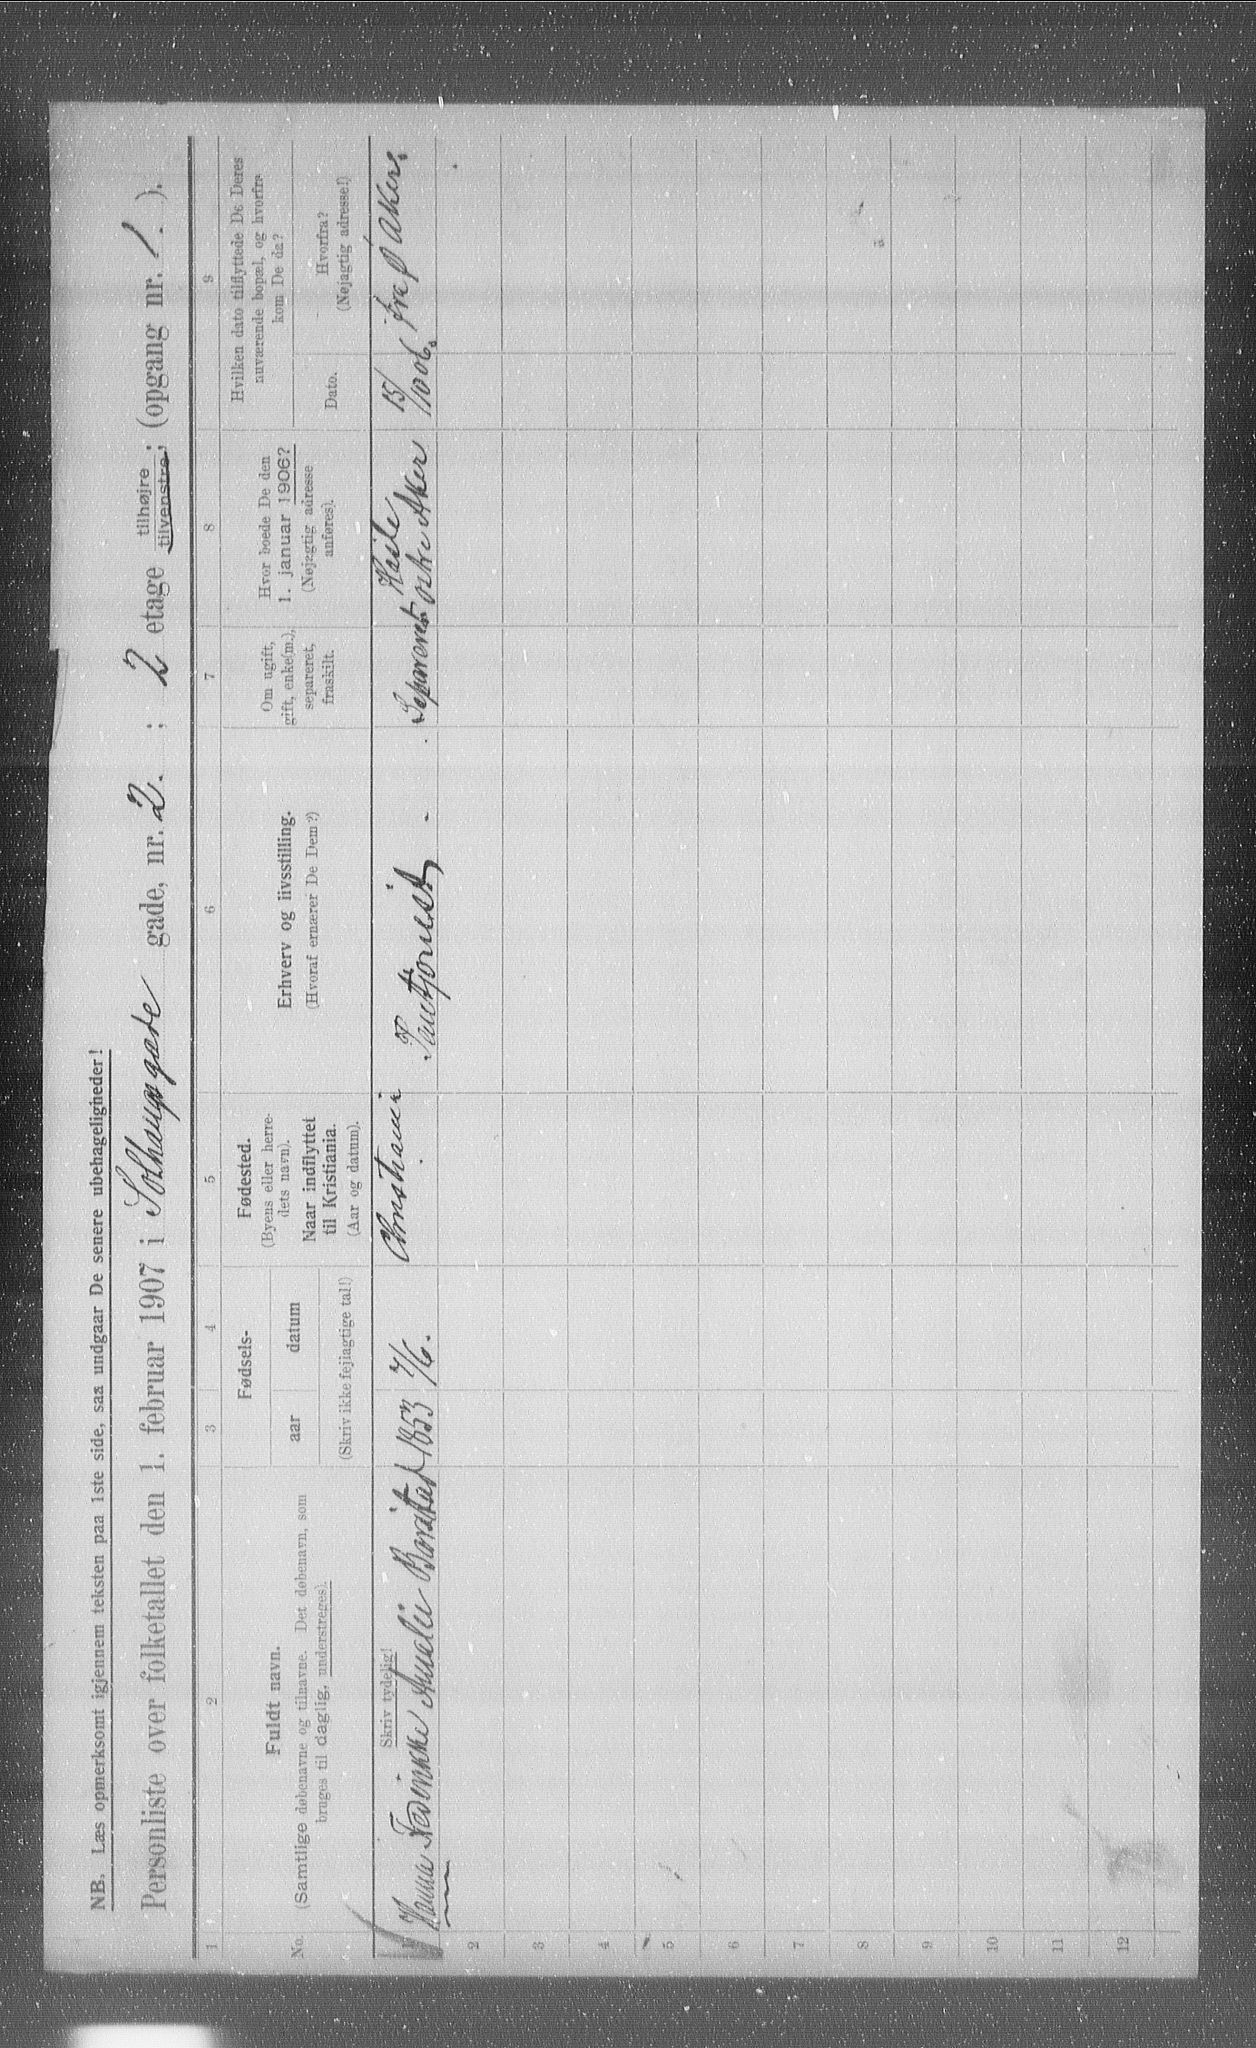 NB. Læs opmerksomt igjennem teksten paa 1ste side, saa undgaar De senere ubehageligheder!
Personliste over folketallet den 1. februar 1907 i Solhaug gade gade, nr. 2. ; 2 etage tilhøjre tilvenstre ; (opgang nr. 1. ).
1 2 3 4 5 6 7 8 9
No.
Fuldt navn.
(Samtlige døbenavne og tilnavne. Det døbenavn, som
bruges til daglig, understreges).
Fødsels-
aar datum
(Skriv ikke fejlagtige tal!)
Fødested.
(Byens eller herre-
dets navn).
Naar indflyttet
til Kristiania.
(Aar og datum).
Erhverv og livsstilling.
(Hvoraf ernærer De Dem?)
Om ugift,
gift, enke(m.),
separeret,
fraskilt.
Hvor boede De den
1. januar 1906?
(Nøjagtig adresse
anføres).
Hvilken dato tilflyttede De Deres
nuværende bopæl, og hvorfra
kom De da?
Dato.
Hvorfra?
(Nøjagtig adresse!)
Skriv tydelig!
1 Hanna Amalie 1853 7/6. Christiania Separeret Østre Aker 15/10 06. fra Ø Aker.
2
3
4
5
6
7
8
9
10
11
12